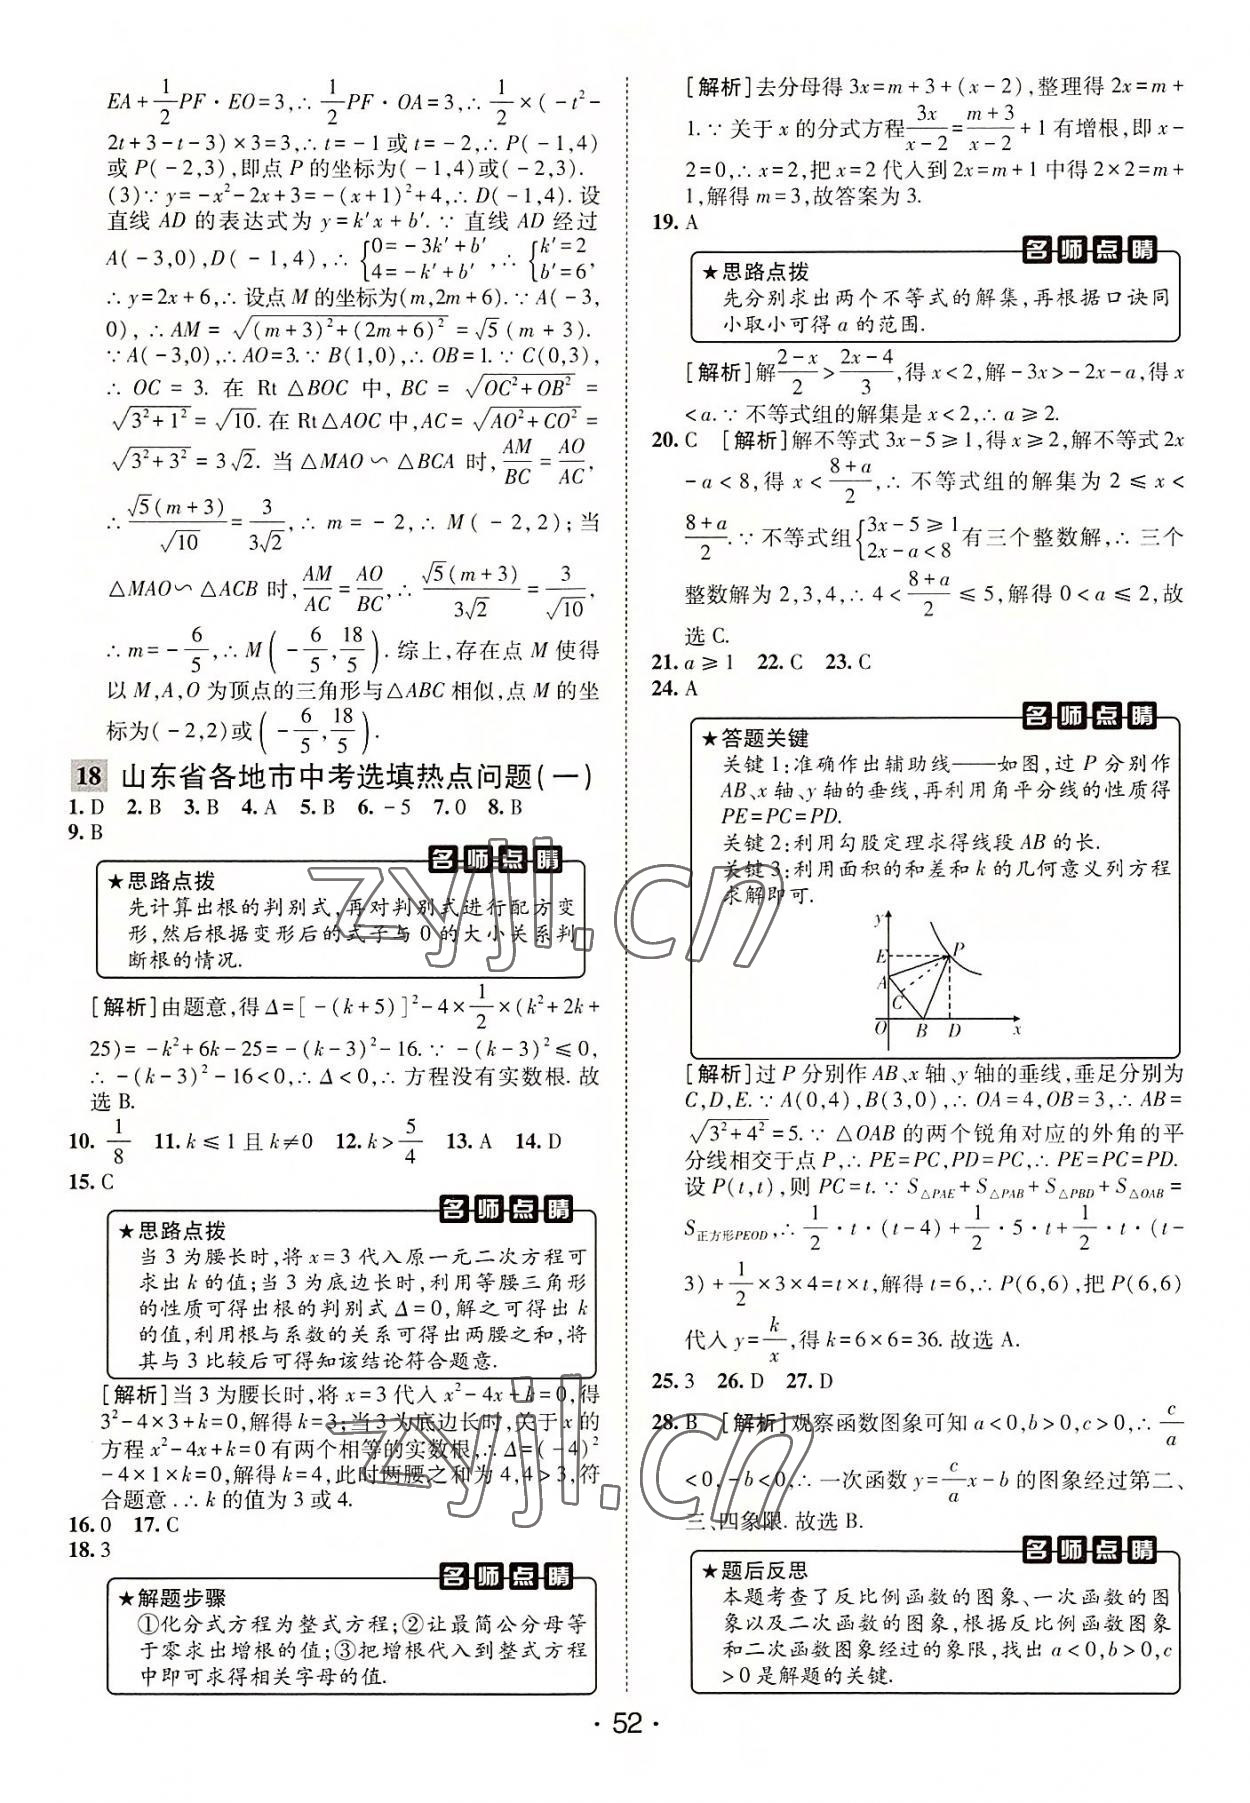 EA+1/2PF·EO=3,∴1/2PF·OA=3,∴1/2×(-t²-
2t+3-t-3)×3=3,∴t=-1或t=-2,∴P(-1,4)
或P(-2,3),即点P的坐标为(-1,4)或(-2,3).
(3)∵y=-x²-2x+3=-(x+1)²+4,∴D(-1,4).设
直线AD的表达式为y=k′x+b′.∵直线AD经过
A(-3,0),D(-1,4),∴{0=-3k′+b′ 4=-k′+b′,∴{k′=2 b′=6,
∴y=2x+6,∴设点M的坐标为(m,2m+6).∵A(-3,
0),∴AM=√((m+3)²+(2m+6)²)=√5(m+3).
∵A(-3,0),∴AO=3.∵B(1,0),∴OB=1.∵C(0,3),
∴OC=3.在Rt△BOC中,BC=√(OC²+OB²)=
√(3²+1²)=√10.在Rt△AOC中,AC=√(AO²+CO²)=
√(3²+3²)=3√2.当△MAO∽△BCA时,AM/BC=AO/AC,
∴√5(m+3)/√10=3/3√2,∴m=-2,∴M(-2,2);当
△MAO∽△ACB时,AM/AC=AO/BC,∴√5(m+3)/3√2=3/√10,
∴m=-6/5,∴M(-6/5,18/5).综上,存在点M使得
以M,A,O为顶点的三角形与△ABC相似,点M的坐
标为(-2,2)或(-6/5,18/5).
18 山东省各地市中考选填热点问题(一)
1.D 2.B 3.B 4.A 5.B 6.-5 7.0 8.B
9.B
名师点睛
★思路点拨
先计算出根的判别式,再对判别式进行配方变
形,然后根据变形后的式子与0的大小关系判
断根的情况.
[解析]由题意,得Δ=[-(k+5)]²-4×1/2×(k²+2k+
25)=-k²+6k-25=-(k-3)²-16.∵-(k-3)²≤0,
∴-(k-3)²-16<0,∴Δ<0,∴方程没有实数根.故
选B.
10.1/8 11.k≤1且k≠0 12.k>5/4 13.A 14.D
15.C
名师点睛
★思路点拨
当3为腰长时,将x=3代入原一元二次方程可
求出k的值;当3为底边长时,利用等腰三角形
的性质可得出根的判别式Δ=0,解之可得出k
的值,利用根与系数的关系可得出两腰之和,将
其与3比较后可得知该结论符合题意.
[解析]当3为腰长时,将x=3代入x²-4x+k=0,得
3²-4×3+k=0,解得k=3;当3为底边长时,关于x的
方程x²-4x+k=0有两个相等的实数根,∴Δ=(-4)²
-4×1×k=0,解得k=4,此时两腰之和为4,4>3,符
合题意.∴k的值为3或4.
16.0 17.C
18.3
名师点睛
★解题步骤
①化分式方程为整式方程;②让最简公分母等
于零求出增根的值;③把增根代入到整式方程
中即可求得相关字母的值.
[解析]去分母得3x=m+3+(x-2),整理得2x=m+
1.∵关于x的分式方程3x/(x-2)=(m+3)/(x-2)+1有增根,即x-
2=0,∴x=2,把x=2代入到2x=m+1中得2×2=m+
1,解得m=3,故答案为3.
19.A
名师点睛
★思路点拨
先分别求出两个不等式的解集,再根据口诀同
小取小可得a的范围.
[解析]解(2-x)/2>(2x-4)/3,得x<2,解-3x>-2x-a,得x
<a.∵不等式组的解集是x<2,∴a≥2.
20.C [解析]解不等式3x-5≥1,得x≥2,解不等式2x
-a<8,得x<(8+a)/2,∴不等式组的解集为2≤x<
(8+a)/2.∵不等式组{3x-5≥1 2x-a<8有三个整数解,∴三个
整数解为2,3,4,∴4<(8+a)/2≤5,解得0<a≤2,故
选C.
21.a≥1 22.C 23.C
24.A
名师点睛
★答题关键
关键1:准确作出辅助线——如图,过P分别作
AB、x轴、y轴的垂线,再利用角平分线的性质得
PE=PC=PD.
关键2:利用勾股定理求得线段AB的长.
关键3:利用面积的和差和k的几何意义列方程
求解即可.
y
E P
A
C
O B D x
[解析]过P分别作AB、x轴、y轴的垂线,垂足分别为
C,D,E.∵A(0,4),B(3,0),∴OA=4,OB=3,∴AB=
√(3²+4²)=5.∵△OAB的两个锐角对应的外角的平
分线相交于点P,∴PE=PC,PD=PC,∴PE=PC=PD.
设P(t,t),则PC=t.∵S△PAE+S△PAB+S△PBD+S△OAB=
S正方形PEOD,∴1/2·t·(t-4)+1/2·5·t+1/2·t·(t-
3)+1/2×3×4=t×t,解得t=6,∴P(6,6),把P(6,6)
代入y=k/x,得k=6×6=36.故选A.
25.3 26.D 27.D
28.B [解析]观察函数图象可知a<0,b>0,c>0,∴c/a
<0,-b<0,∴一次函数y=c/a x-b的图象经过第二、
三、四象限.故选B.
名师点睛
★题后反思
本题考查了反比例函数的图象、一次函数的图
象以及二次函数的图象,根据反比例函数图象
和二次函数图象经过的象限,找出a<0,b>0,c
>0是解题的关键.
·52·
zyjl.cn
zyjl.cn